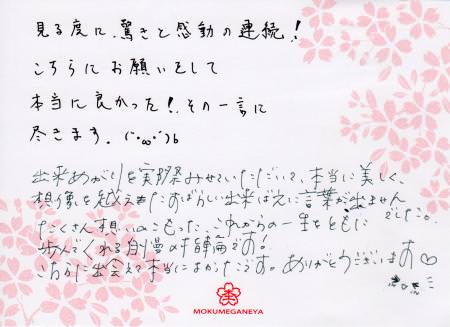 見る度に、驚きと感動の連続！
こちらにお願いをして
本当に良かった！その一言に
尽きます。(´・ω・`)b
出来あがりを実際みせていただいて、本当に美しく、
想像を越えたすばらしい出来ばえに言葉が出ません
でした。
たくさん想いのこもった、これからの一生をともに
歩んでくれる自慢の指輪です。
こちらに出会えて本当によかったです。ありがとうございます♡
MOKUMEGANEYA